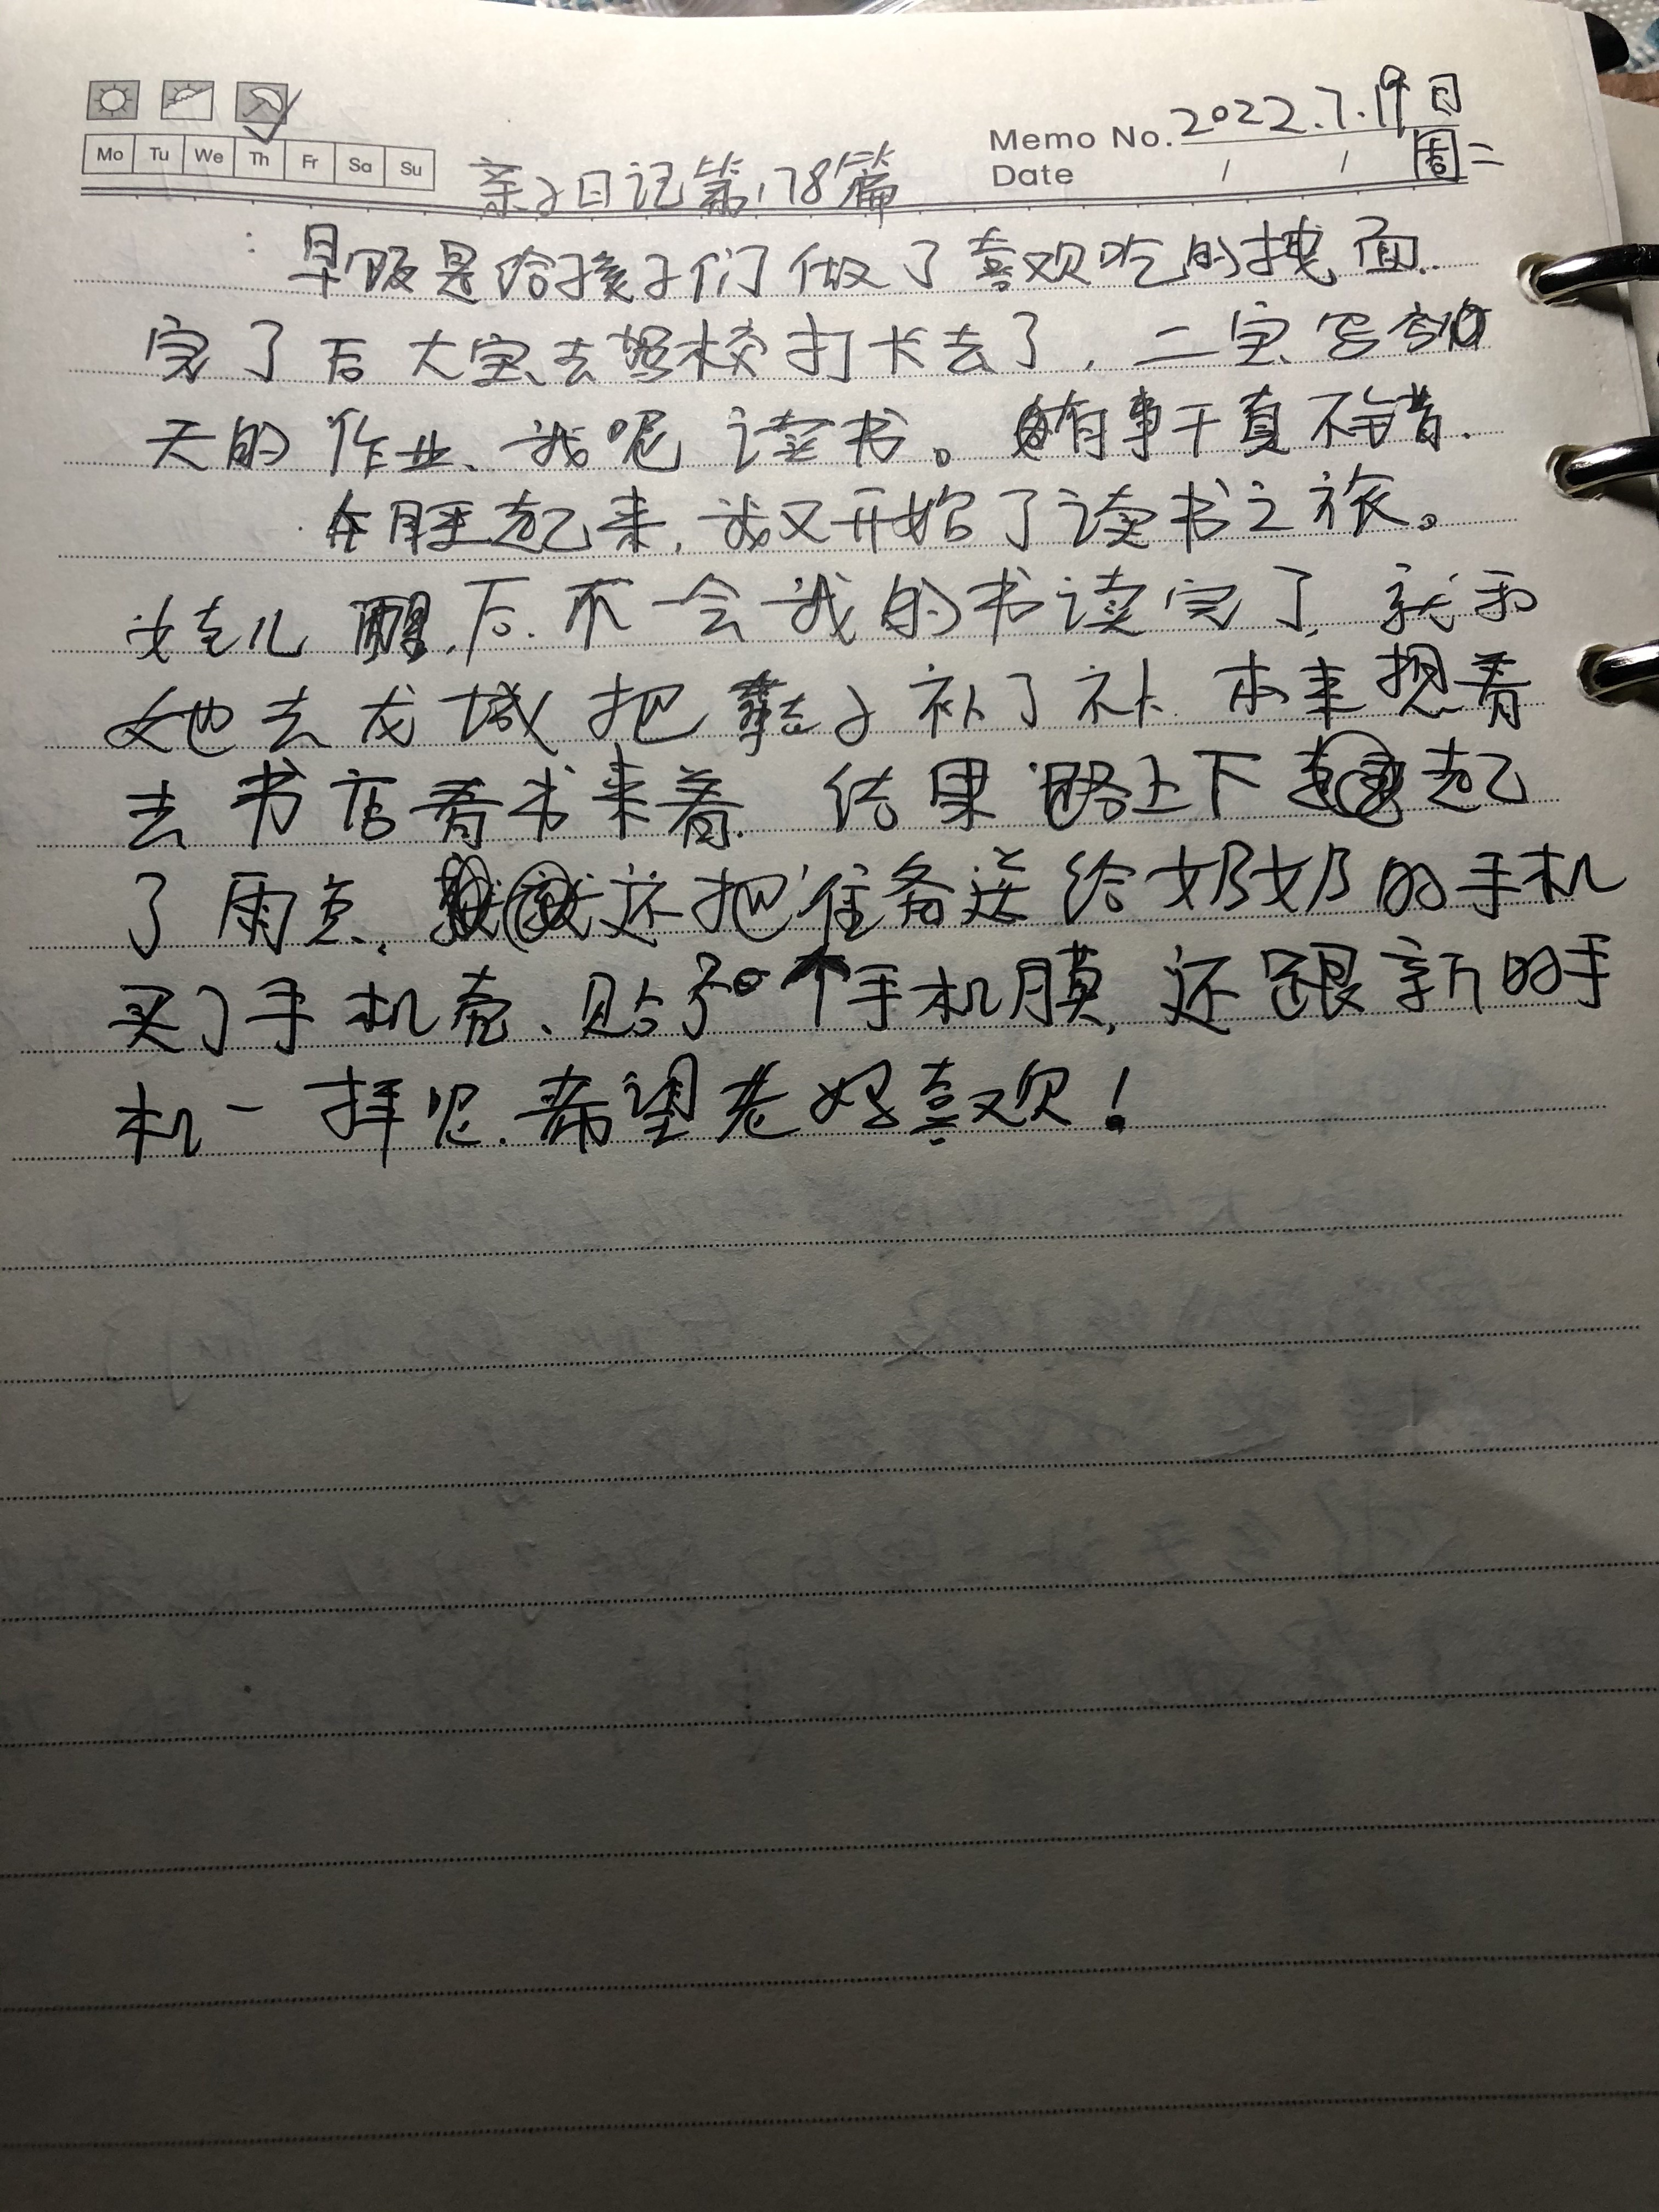 Memo No. 2022.7.19日
Mo Tu We Th Fr Sa Su
Date / / 周二
亲子日记第178篇
早饭是给孩子们做了喜欢吃的拽面.
完了后大宝去驾校打卡去了,二宝写
天的作业、我呢读书。有事干真不错.
午睡起来,我又开始了读书之旅。
娃儿醒后.不一会我的书读完了,就和
她去龙城把鞋子补了补.本来想着
去书店看书来着.结果路上下起
了雨点、还把准备送给奶奶的手机
买了手机壳、贴了个手机膜,还跟新的手
机一样呢.希望老妈喜欢!